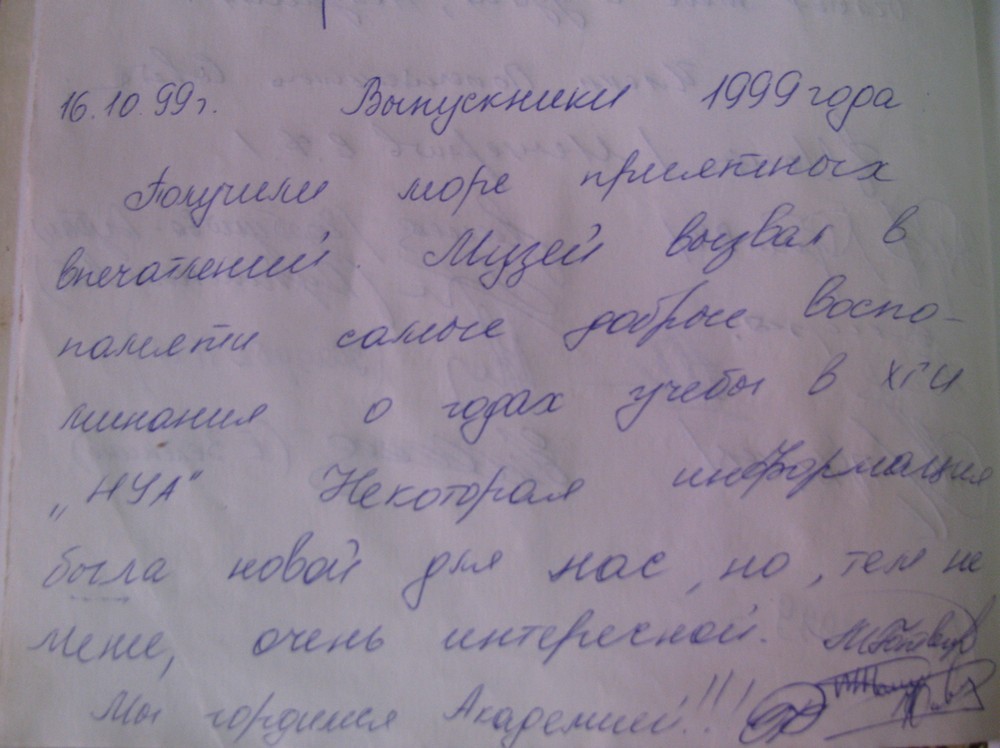 16.10.99г. Выпускники 1999 года
Получили море приятных
впечатлений. Музей вызвал в
памяти самые добрые воспо-
минания о годах учебы в ХГИ
„НУА" Некоторая информация
была новой для нас, но, тем не
мене, очень интересной.
Мы гордимся Академией!!!